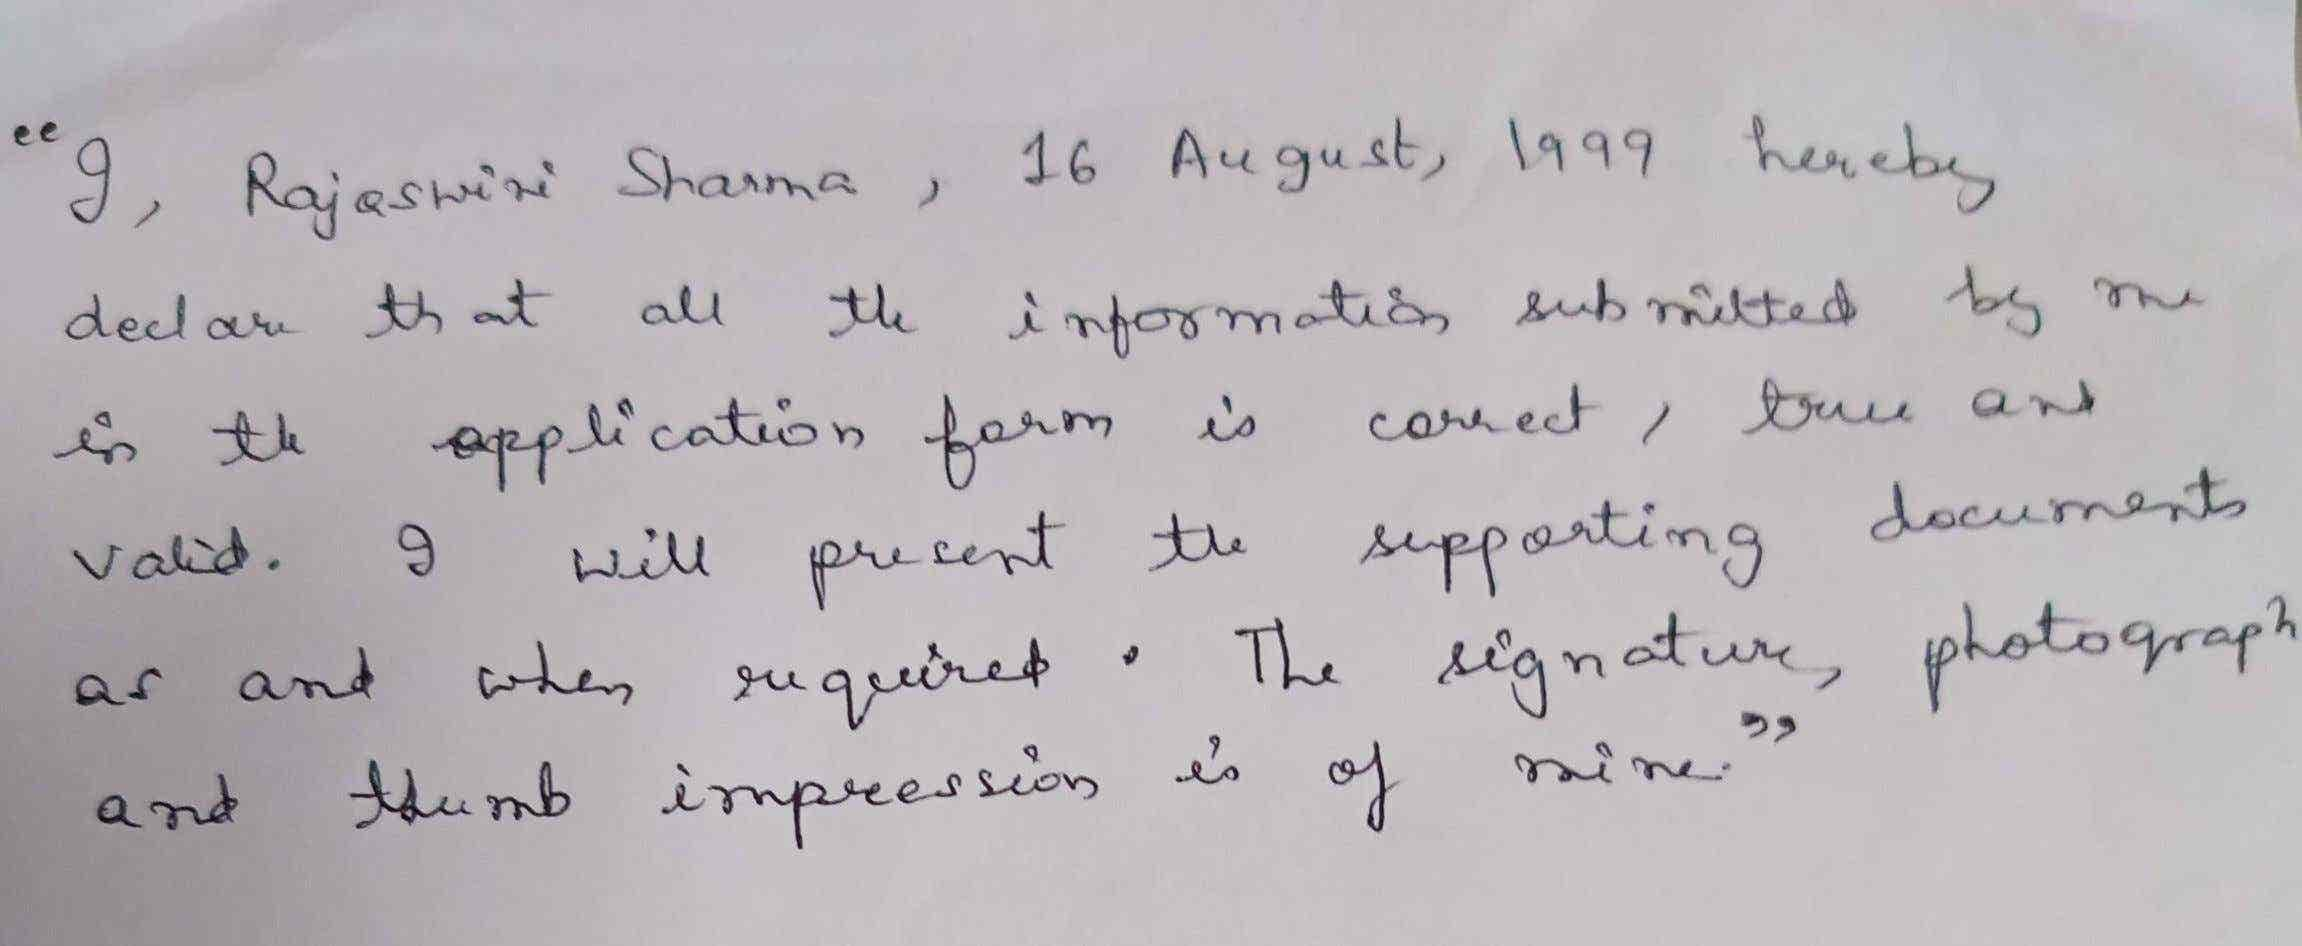 "I, Rajaswini Sharma, 16 August, 1999 hereby
declare that all the information submitted by me
in the application form is correct, true and
valid. I will present the supporting documents
as and when required. The signature, photograph
and thumb impression is of mine."